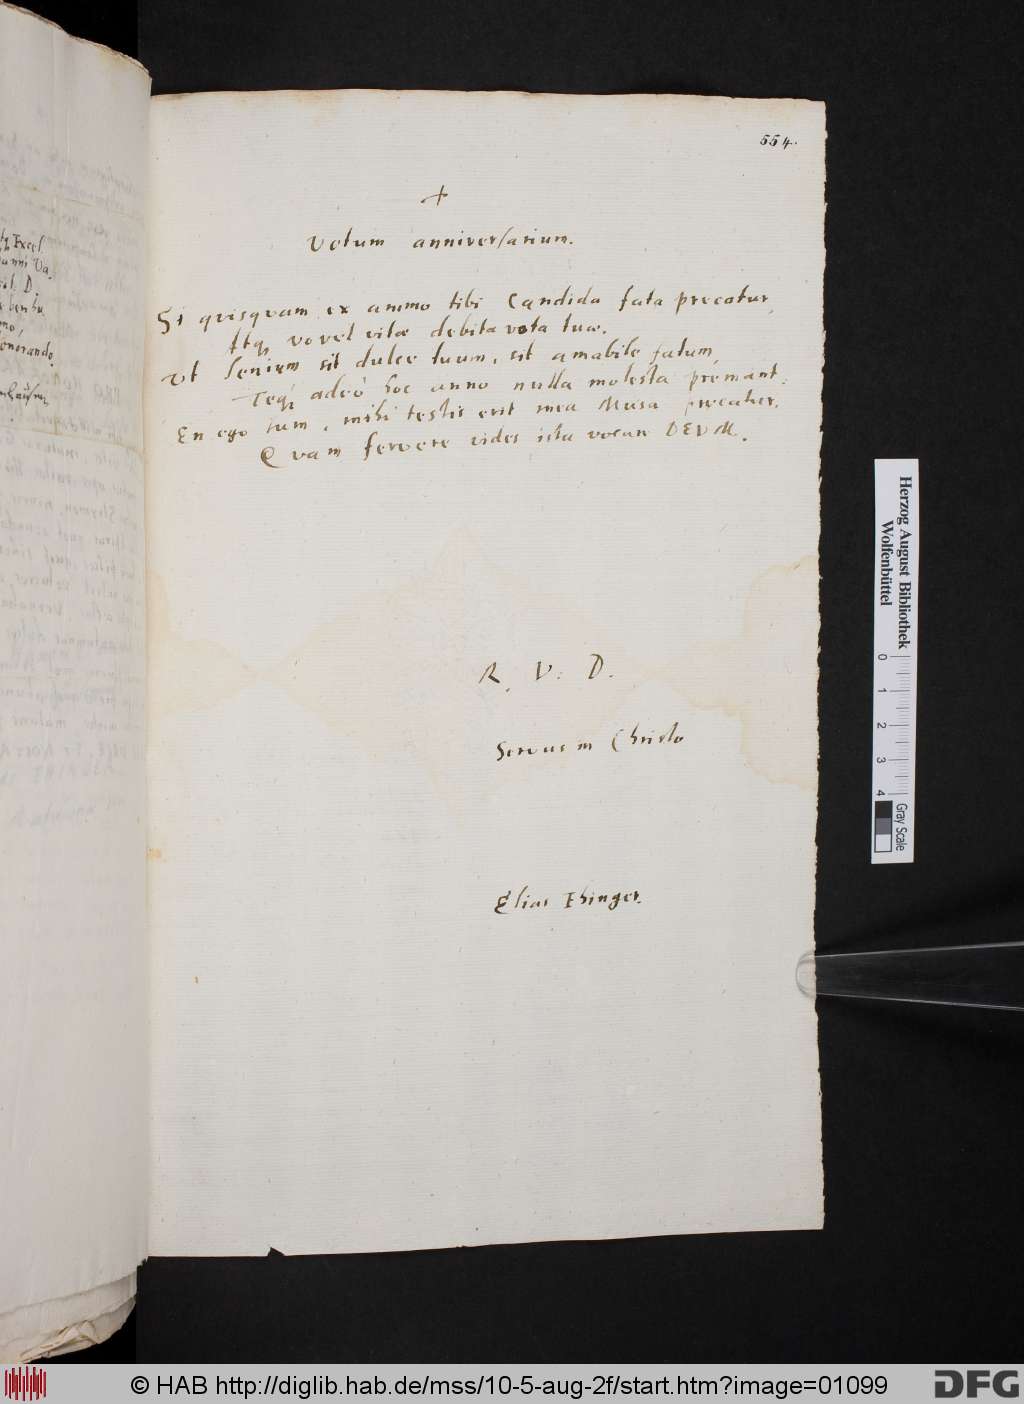 554.
+
Votum anniversarium.
Si quisquam ex animo tibi candida fata precatur,
Atq; vovet vitæ debita vota tuæ.
Ut senium sit dulce tuum, sit amabile fatum,
Teq; adeò hoc anno nulla molesta premant:
En ego sum, mihi testis erit mea Musa precatur.
Quam fervere vides ista vocare DEUM.
R. V. D.
Servus in Christo
Elias Ehinger.
Excel.
Va.
D.
onorando
Herzog August Bibliothek
Wolfenbüttel
0 1 2 3 4
Gray Scale
© HAB http://diglib.hab.de/mss/10-5-aug-2f/start.htm?image=01099
DFG